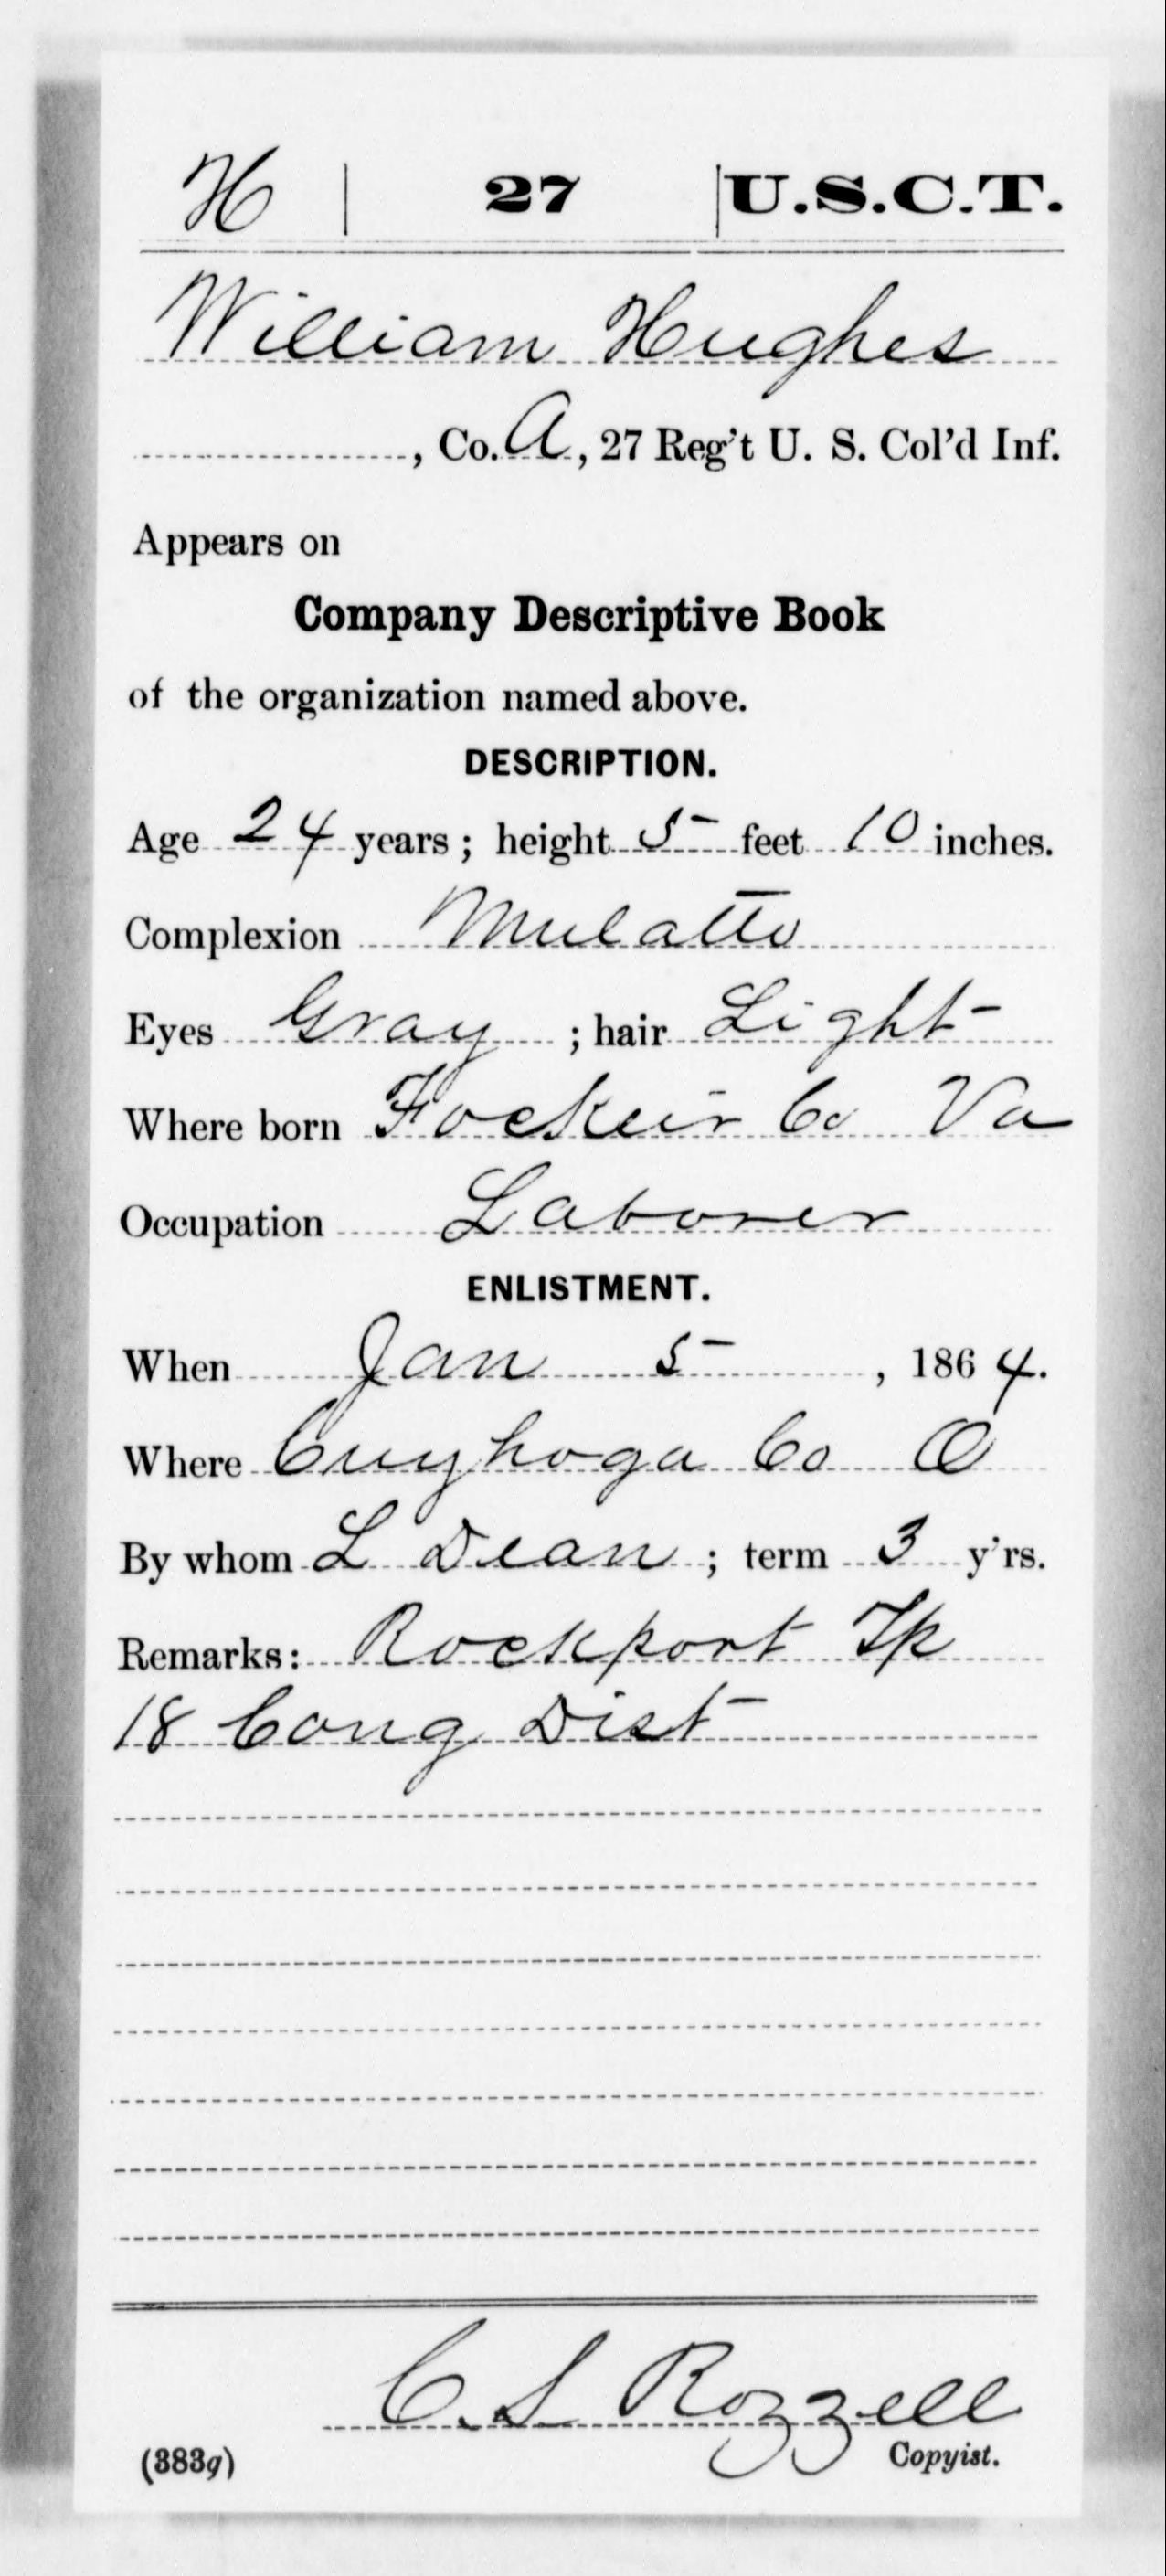 H | 27 | U.S.C.T.
William Hughes
, Co. A, 27 Reg't U. S. Col'd Inf.
Appears on
Company Descriptive Book
of the organization named above.
DESCRIPTION.
Age 24 years; height 5 feet 10 inches.
Complexion Mulatto
Eyes Gray; hair Light
Where born Fockeir Co Va
Occupation Laborer
ENLISTMENT.
When Jan 5, 1864.
Where Cuyhoga Co O
By whom L Dean; term 3 y'rs.
Remarks: Rockport Tp
18 Cong Dist
C. S Rozzell
(383g) Copyist.